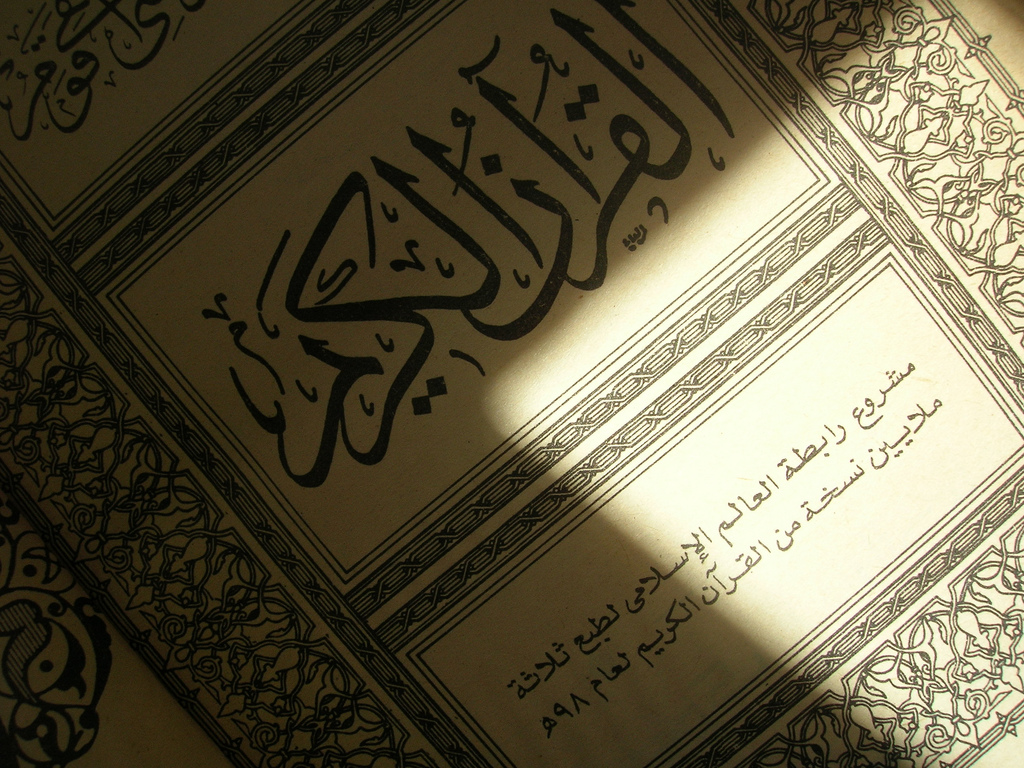 القرآن الكريم
مشروع رابطة العالم الإسلامى لطبع ثلاثة
ملايين نسخة من القرآن الكريم لعام ٩٨ھ